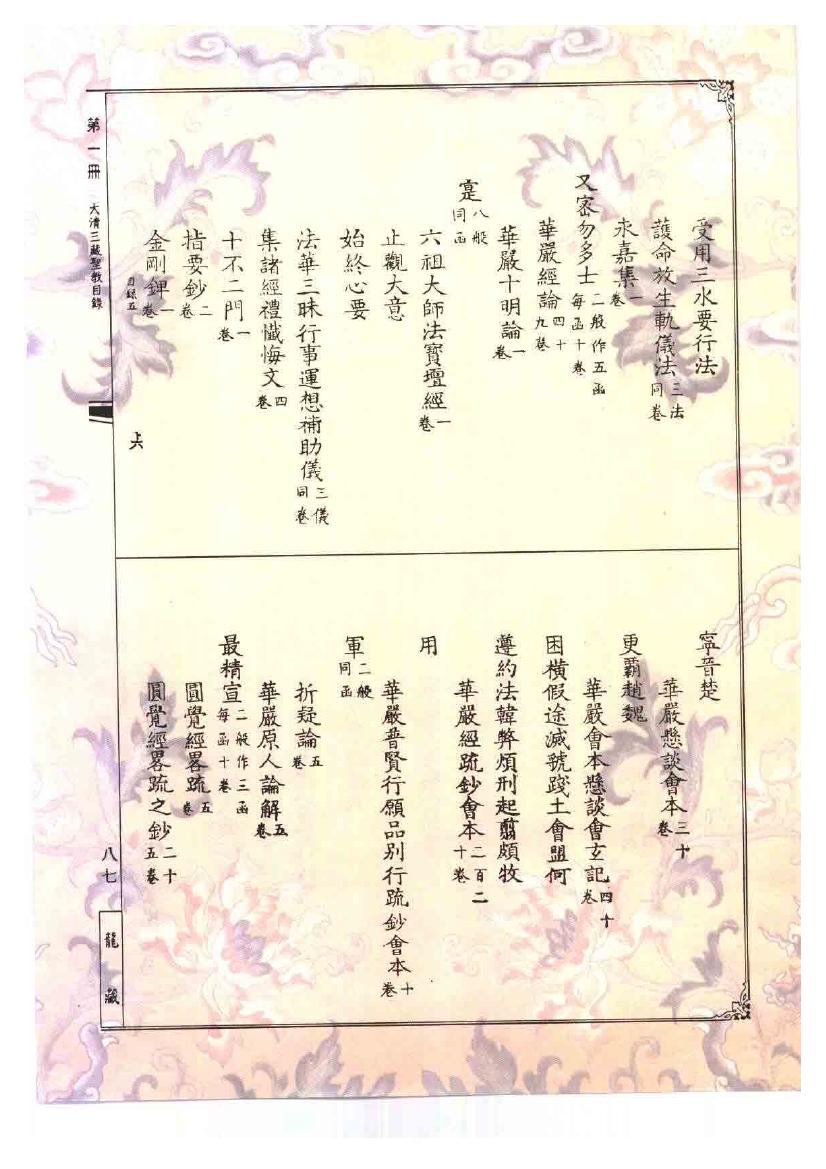 受用三水要行法
護命放生軌儀法三法同卷
永嘉集一卷
又密勿多士二般作五函每函十卷
華嚴經論四十九卷
華嚴十明論一卷
寔八般同函
六祖大師法寶壇經一卷
止觀大意
始終心要
法華三昧行事運想補助儀三儀同卷
集諸經禮懺悔文四卷
十不二門一卷
指要鈔二卷
金剛錍一卷
目錄五
六
寧晉楚
華嚴懸談會本三十卷
更霸趙魏
華嚴會本懸談會玄記四十卷
困橫假途滅虢踐土會盟何
遵約法韓弊煩刑起翦頗牧
華嚴經疏鈔會本二百二十卷
用
華嚴普賢行願品別行疏鈔會本十卷
軍二般同函
折疑論五卷
華嚴原人論解五卷
最精宣二般作三函每函十卷
圓覺經畧疏五卷
圓覺經畧疏之鈔二十五卷
第一冊 大清三藏聖教目錄
八七
龍藏